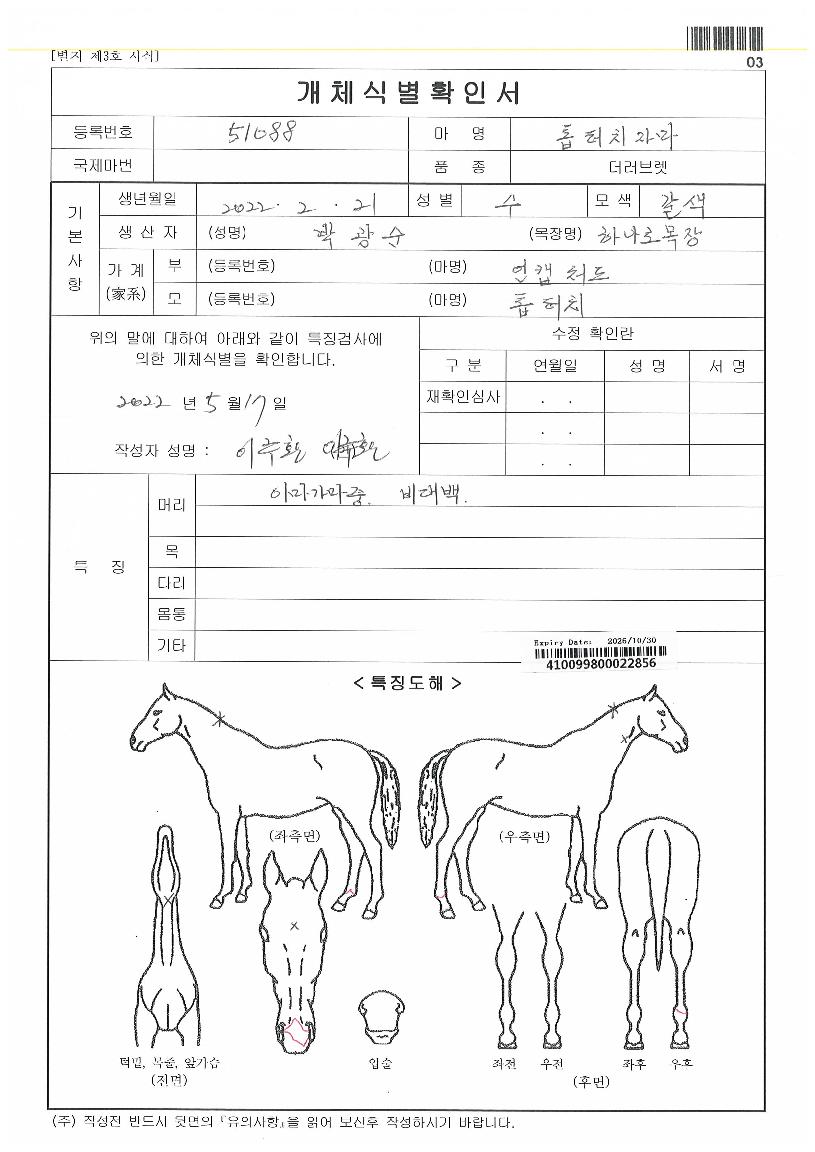 [별지 제3호 서식]
03
개체식별확인서
등록번호 51088 마 명 톱터치자다
국제마번 품 종 더러브렛
기본사항
생년월일 2022 . 2 . 21 성별 수 모색 갈색
생 산 자 (성명) 박광순 (목장명) 하나로목장
가계 (家系) 부 (등록번호) (마명) 언캡처드
모 (등록번호) (마명) 톱터치
위의 말에 대하여 아래와 같이 특징검사에
의한 개체식별을 확인합니다.
2022 년 5 월 17 일
작성자 성명 : 이주환
수정 확인란
구 분 연월일 성 명 서 명
재확인심사 . .
. .
. .
특 징
머리 이마가마중. 비대백.
목
다리
몸통
기타
Expiry Date: 2026/10/30
410099800022856
< 특징도해 >
(좌측면) (우측면)
턱밑, 목줄, 앞가슴 입술 좌전 우전 좌후 우후
(전면) (후면)
(주) 작성전 반드시 뒷면의 『유의사항』을 읽어 보신후 작성하시기 바랍니다.